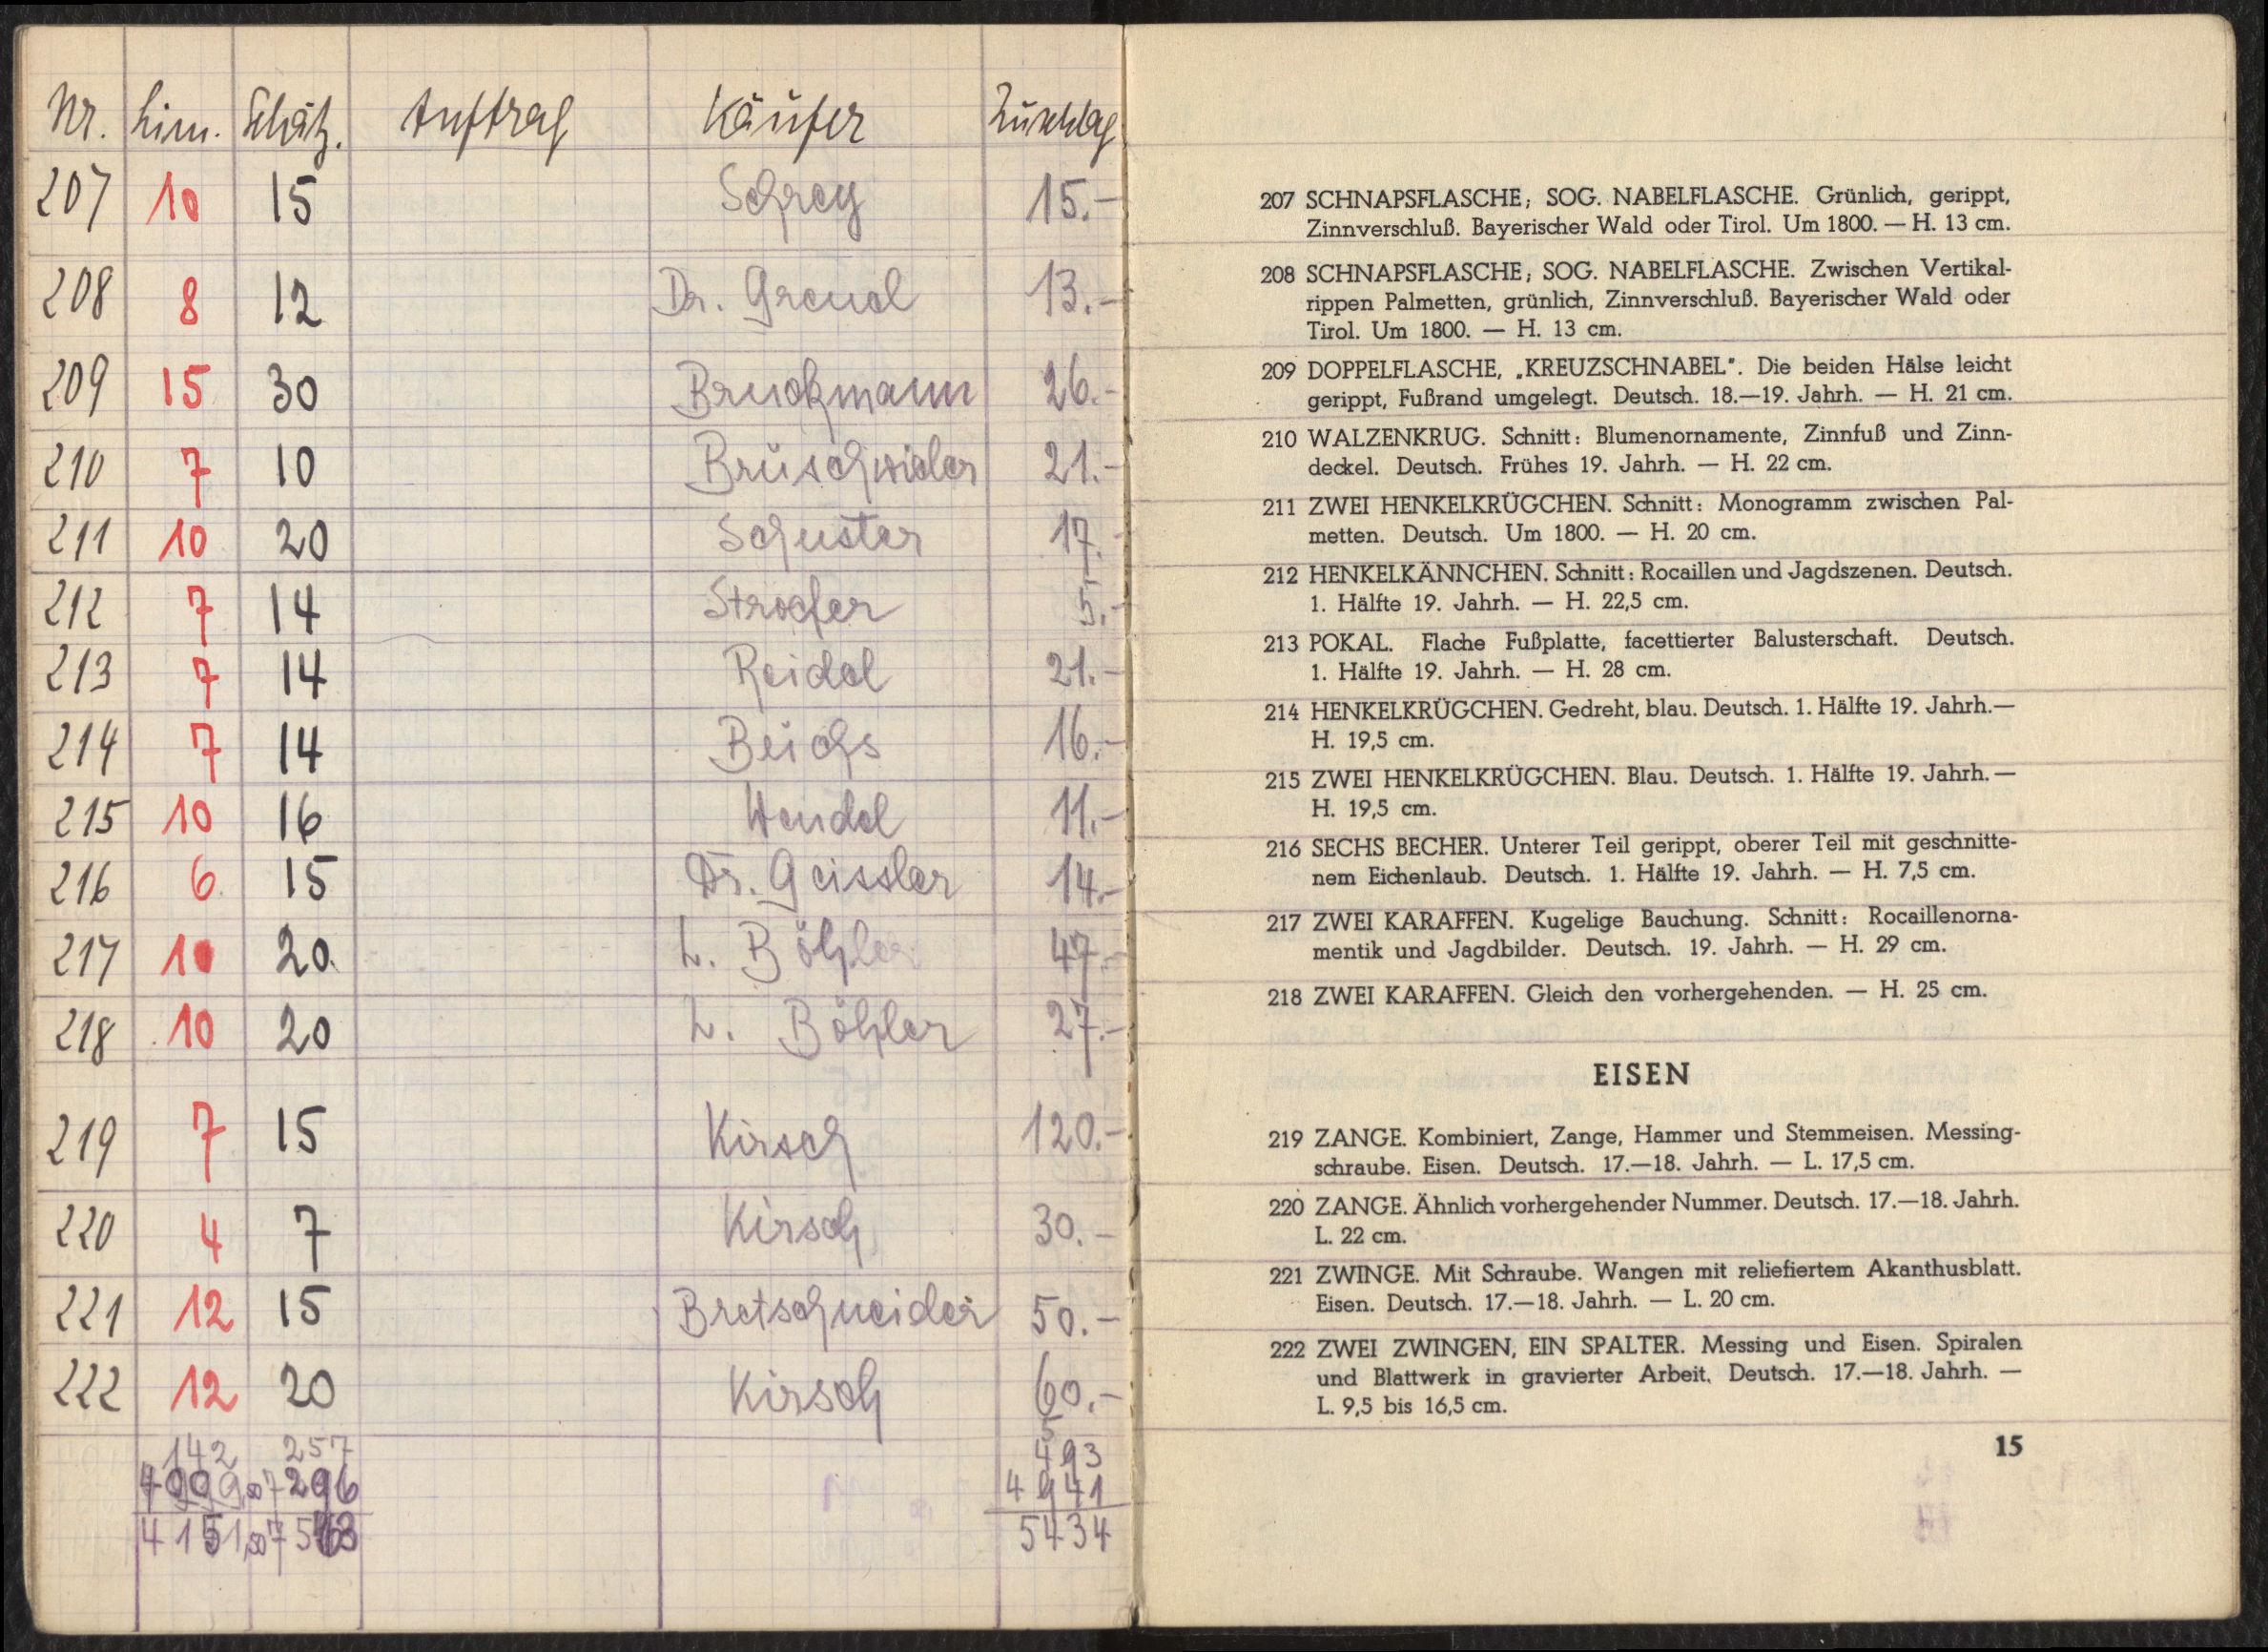 Nr. Lim. Schätz. Auftrag Käufer Zuschlag
207 10 15 Schrey 15.-
208 8 12 Dr. Greuel 13.-
209 15 30 Bruckmann 26.-
210 7 10 Brüschwiler 21.-
211 10 20 Schuster 17.-
212 7 14 Strober 5.-
213 7 14 Reidel 21.-
214 7 14 Beichs 16.-
215 10 16 Wendel 11.-
216 6 15 Dr. Geissler 14.-
217 10 20. L. Böhler 47.-
218 10 20 L. Böhler 27.-
219 7 15 Kirsch 120.-
220 4 7 Kirsch 30.-
221 12 15 Bretschneider 50.-
222 12 20 Kirsch 60.-
142 257 493
7296 4941
4151,50 5434
207 SCHNAPSFLASCHE; SOG. NABELFLASCHE. Grünlich, gerippt,
Zinnverschluß. Bayerischer Wald oder Tirol. Um 1800. — H. 13 cm.
208 SCHNAPSFLASCHE; SOG. NABELFLASCHE. Zwischen Vertikal-
rippen Palmetten, grünlich, Zinnverschluß. Bayerischer Wald oder
Tirol. Um 1800. — H. 13 cm.
209 DOPPELFLASCHE, „KREUZSCHNABEL“. Die beiden Hälse leicht
gerippt, Fußrand umgelegt. Deutsch. 18.—19. Jahrh. — H. 21 cm.
210 WALZENKRUG. Schnitt: Blumenornamente, Zinnfuß und Zinn-
deckel. Deutsch. Frühes 19. Jahrh. — H. 22 cm.
211 ZWEI HENKELKRÜGCHEN. Schnitt: Monogramm zwischen Pal-
metten. Deutsch. Um 1800. — H. 20 cm.
212 HENKELKÄNNCHEN. Schnitt: Rocaillen und Jagdszenen. Deutsch.
1. Hälfte 19. Jahrh. — H. 22,5 cm.
213 POKAL. Flache Fußplatte, facettierter Balusterschaft. Deutsch.
1. Hälfte 19. Jahrh. — H. 28 cm.
214 HENKELKRÜGCHEN. Gedreht, blau. Deutsch. 1. Hälfte 19. Jahrh.—
H. 19,5 cm.
215 ZWEI HENKELKRÜGCHEN. Blau. Deutsch. 1. Hälfte 19. Jahrh. —
H. 19,5 cm.
216 SECHS BECHER. Unterer Teil gerippt, oberer Teil mit geschnitte-
nem Eichenlaub. Deutsch. 1. Hälfte 19. Jahrh. — H. 7,5 cm.
217 ZWEI KARAFFEN. Kugelige Bauchung. Schnitt: Rocaillenorna-
mentik und Jagdbilder. Deutsch. 19. Jahrh. — H. 29 cm.
218 ZWEI KARAFFEN. Gleich den vorhergehenden. — H. 25 cm.
EISEN
219 ZANGE. Kombiniert, Zange, Hammer und Stemmeisen. Messing-
schraube. Eisen. Deutsch. 17.—18. Jahrh. — L. 17,5 cm.
220 ZANGE. Ähnlich vorhergehender Nummer. Deutsch. 17.—18. Jahrh.
L. 22 cm.
221 ZWINGE. Mit Schraube. Wangen mit reliefiertem Akanthusblatt.
Eisen. Deutsch. 17.—18. Jahrh. — L. 20 cm.
222 ZWEI ZWINGEN, EIN SPALTER. Messing und Eisen. Spiralen
und Blattwerk in gravierter Arbeit. Deutsch. 17.—18. Jahrh. —
L. 9,5 bis 16,5 cm.
15